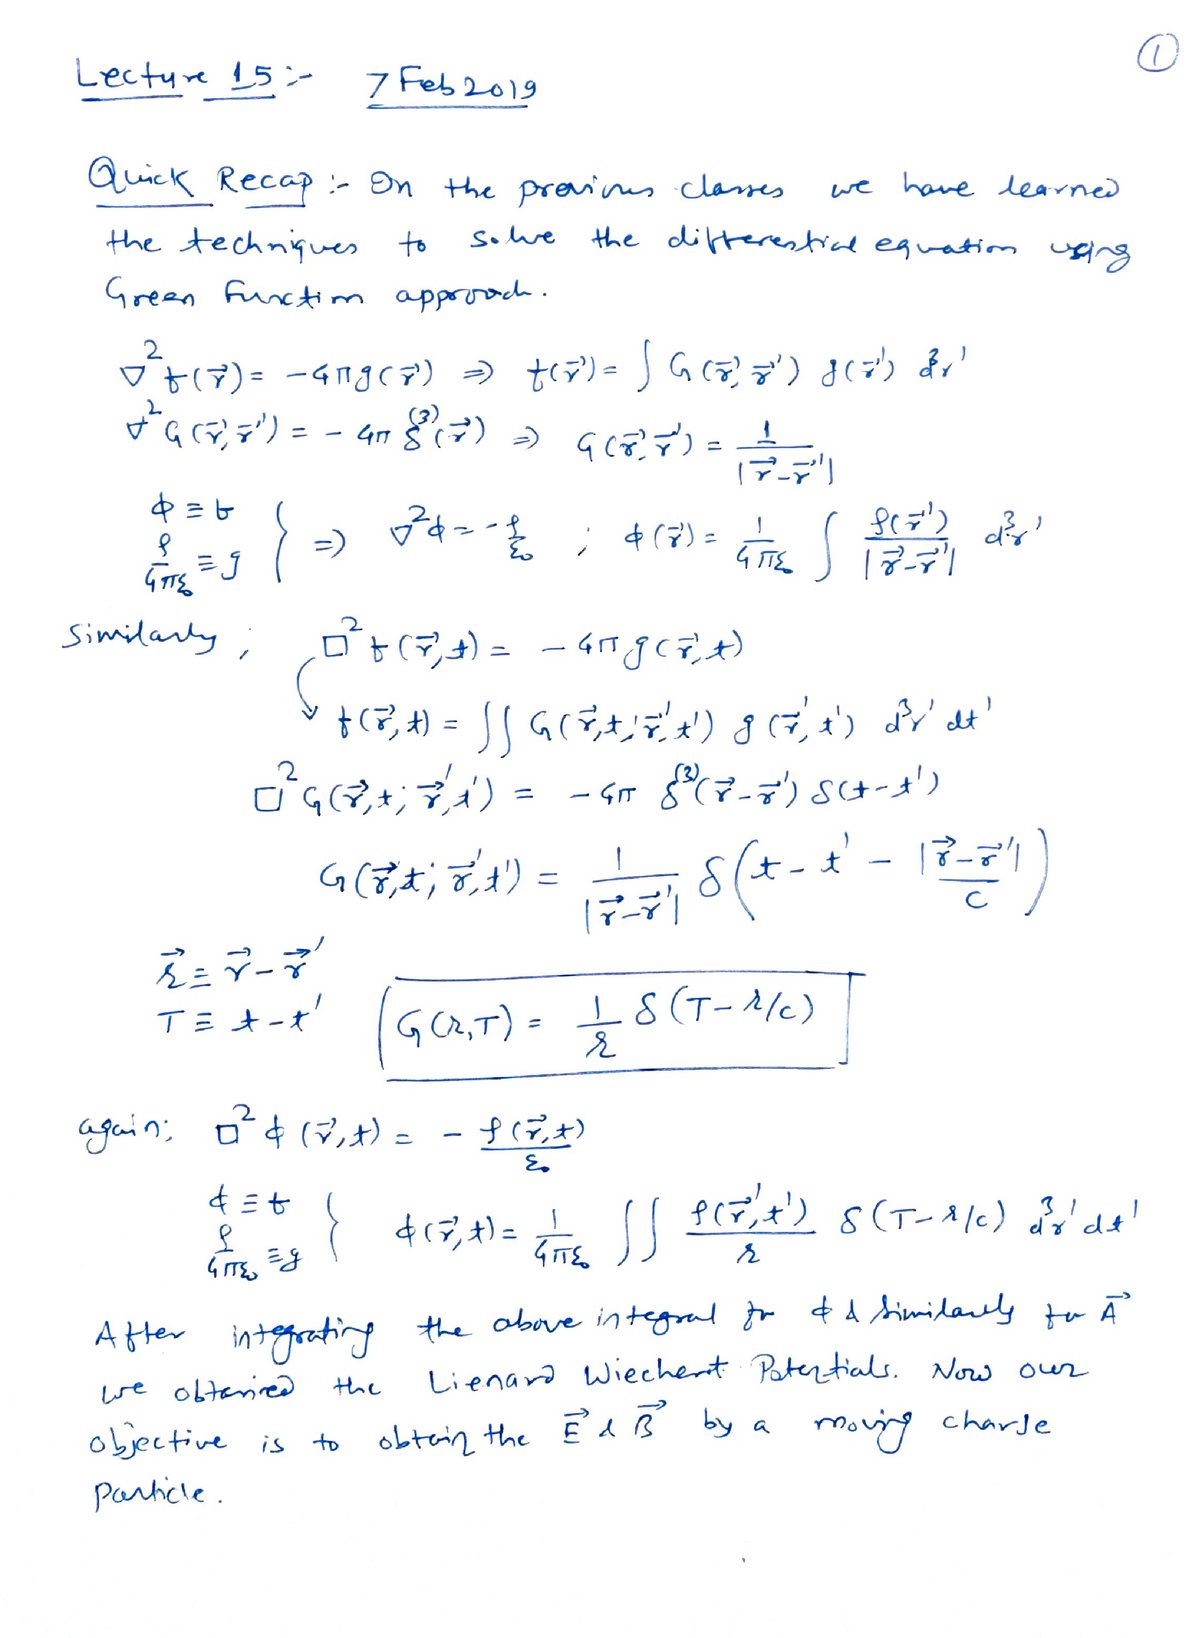 ①
Lecture 15 :- 7 Feb 2019
Quick Recap :- On the previous classes we have learned
the techniques to solve the differential equation using
Green Function approach.
∇²f(r⃗) = -4πg(r⃗) ⇒ f(r⃗) = ∫ G(r⃗, r⃗') g(r⃗') d³r'
∇²G(r⃗, r⃗') = -4π δ⁽³⁾(r⃗) ⇒ G(r⃗, r⃗') = 1/|r⃗-r⃗'|
φ ≡ f
ρ/4πε₀ ≡ g } ⇒ ∇²φ = -ρ/ε₀ ; φ(r⃗) = 1/4πε₀ ∫ ρ(r⃗')/|r⃗-r⃗'| d³r'
Similarly ; □²f(r⃗, t) = -4πg(r⃗, t)
f(r⃗, t) = ∫∫ G(r⃗, t; r⃗', t') g(r⃗', t') d³r' dt'
□²G(r⃗, t; r⃗', t') = -4π δ⁽³⁾(r⃗-r⃗') δ(t-t')
G(r⃗, t; r⃗', t') = 1/|r⃗-r⃗'| δ(t - t' - |r⃗-r⃗'|/c)
𝓇⃗ ≡ r⃗-r⃗'
T ≡ t-t' G(𝓇,T) = 1/𝓇 δ(T-𝓇/c)
again; □²φ(r⃗, t) = - ρ(r⃗, t)/ε₀
φ ≡ f
ρ/4πε₀ ≡ g } φ(r⃗, t) = 1/4πε₀ ∫∫ ρ(r⃗', t')/𝓇 δ(T-𝓇/c) d³r' dt'
After integrating the above integral for φ & similarly for A⃗
we obtained the Lienard Wiechert Potentials. Now our
objective is to obtain the E⃗ & B⃗ by a moving charge
particle.